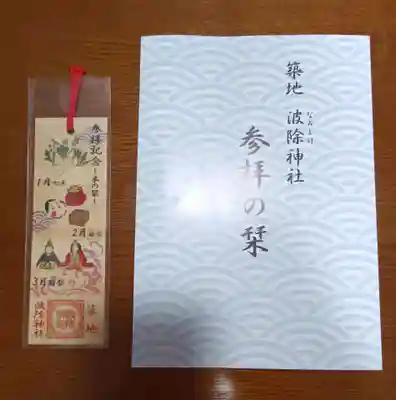 参拝記念
〜春の栞〜
1月
2月
3月
築地
波除神社
築地 波除神社
なみよけ
参拝の栞